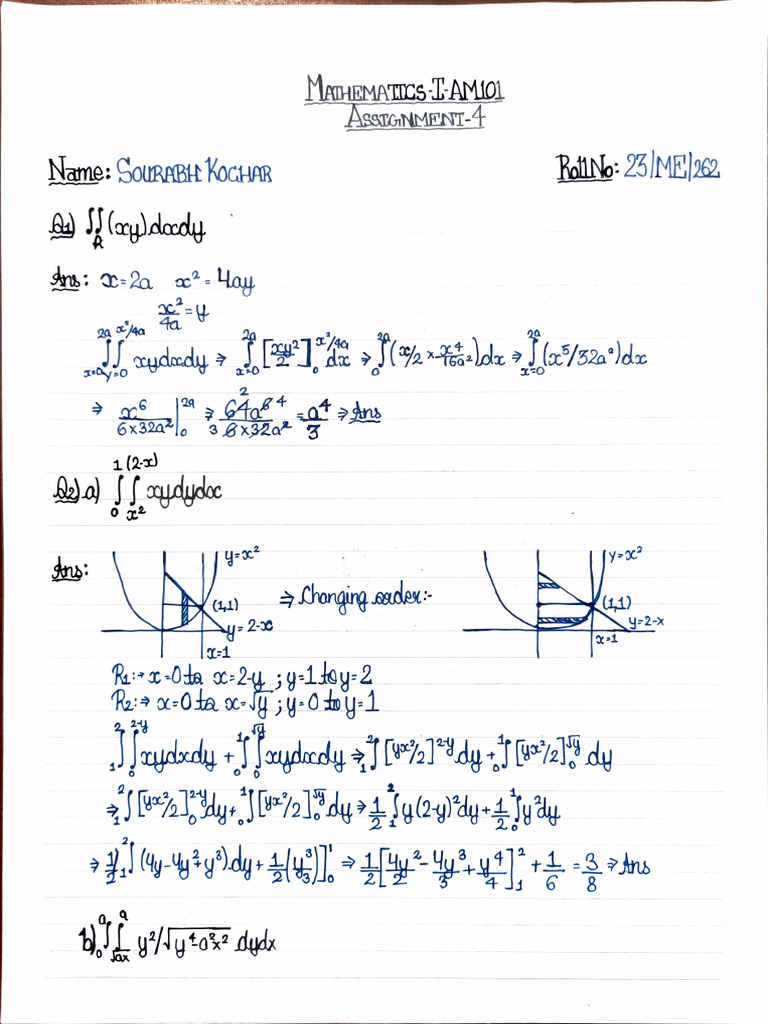 MATHEMATICS-I-AM101
ASSIGNMENT-4
Name: SOURABH KOCHAR Roll No: 23/ME/262
Q1) ∬_R (xy) dxdy
Ans: x=2a x²=4ay
x²/4a = y
∫_{x=0}^{2a} ∫_{y=0}^{x²/4a} xydxdy ⇒ ∫_{x=0}^{2a} [xy²/2]_0^{x²/4a} dx ⇒ ∫_0^{2a} (x/2 × x⁴/16a²) dx ⇒ ∫_{x=0}^{2a} (x⁵/32a²) dx
⇒ x⁶/(6×32a²) |_0^{2a} ⇒ 64a⁶/(6×32a²) = a⁴/3 ⇒ Ans
Q2) a) ∫_0^1 ∫_{x²}^{(2-x)} xydydx
Ans: y=x² (1,1) y=2-x x=1 ⇒ Changing order:- y=x² (1,1) y=2-x x=1
R1:→ x=0 to x=2-y ; y=1 to y=2
R2:→ x=0 to x=√y ; y=0 to y=1
∫_1^2 ∫_0^{2-y} xydxdy + ∫_0^1 ∫_0^{√y} xydxdy ⇒ ∫_1^2 [yx²/2]^{2-y} dy + ∫_0^1 [yx²/2]_0^{√y} dy
⇒ ∫_1^2 [yx²/2]_0^{2-y} dy + ∫_0^1 [yx²/2]_0^{√y} dy ⇒ 1/2 ∫_1^2 y(2-y)² dy + 1/2 ∫_0^1 y² dy
⇒ 1/2 ∫_1^2 (4y-4y²+y³).dy + 1/2 (y³/3)]_0^1 ⇒ 1/2 [4y²/2 - 4y³/3 + y⁴/4]_1^2 + 1/6 = 3/8 ⇒ Ans
b) ∫_0^a ∫_{√ax}^a y²/√(y⁴-a²x²) dydx